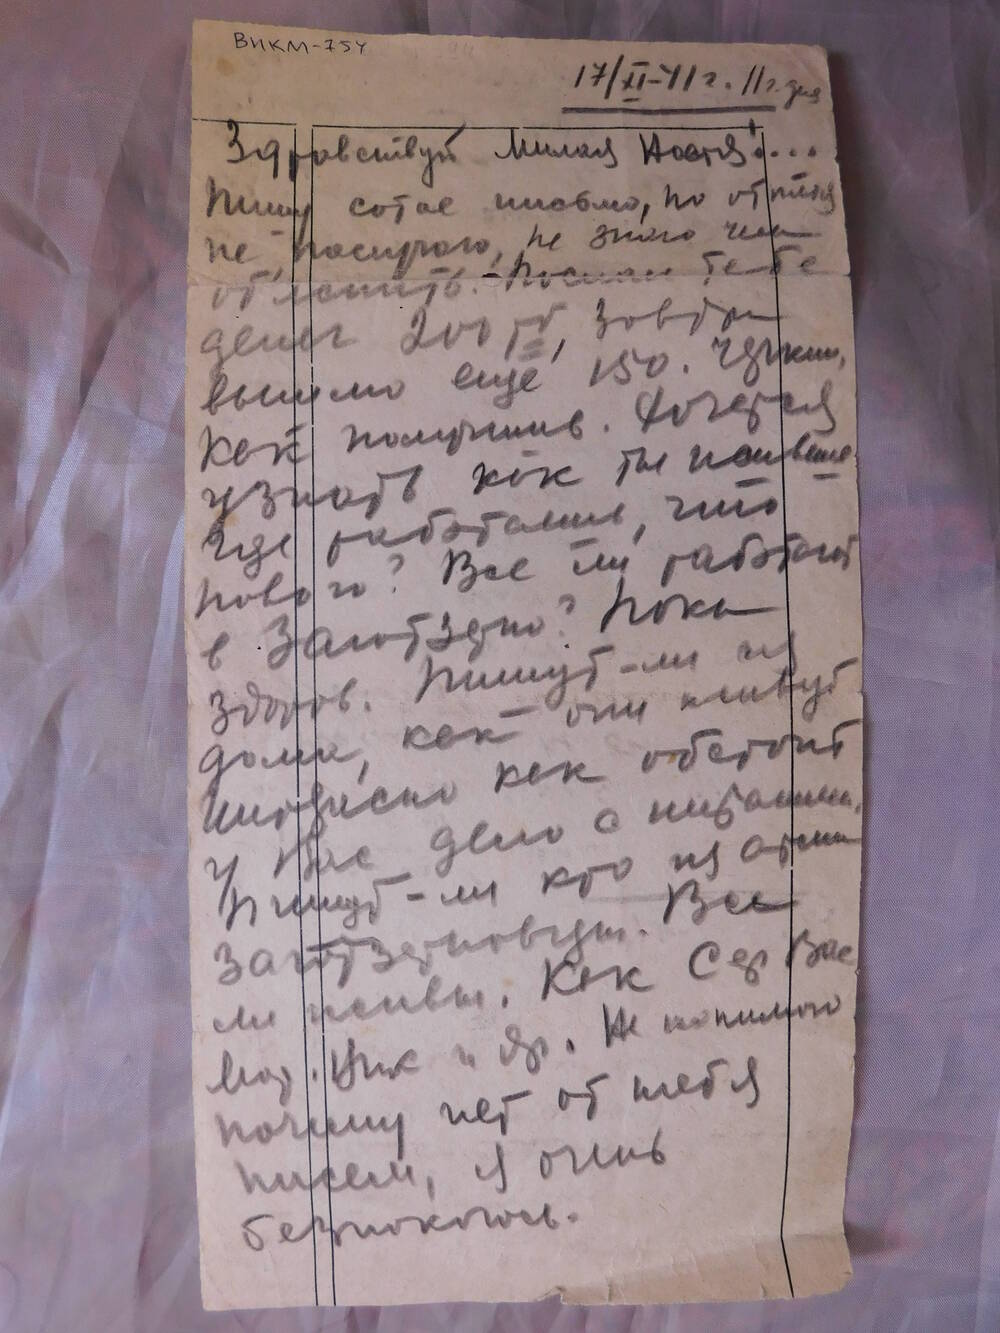 ВИКМ-754
17/XI-41 г. 11 г. дня
Здравствуй милая Настя!...
Пишу сотое письмо, но от тебя
не получаю, не знаю чем
об'яснить. Послал тебе
денег 200 руб, завтра
вышлю еще 150.
как получишь. Хочется
узнать как ты живешь
где работаешь, что
нового? Все ли работают
в Заготзерно? Пока
здоров. Пишут-ли из
дома, как они живут
интересно как обстоит
у Вас дело с питанием.
Пишут-ли кто из
Заготзерновцев. Все
ли живы. Как Сер Вас
Ник и др. Не понимаю
почему нет от тебя
писем, я очень
беспокоюсь.